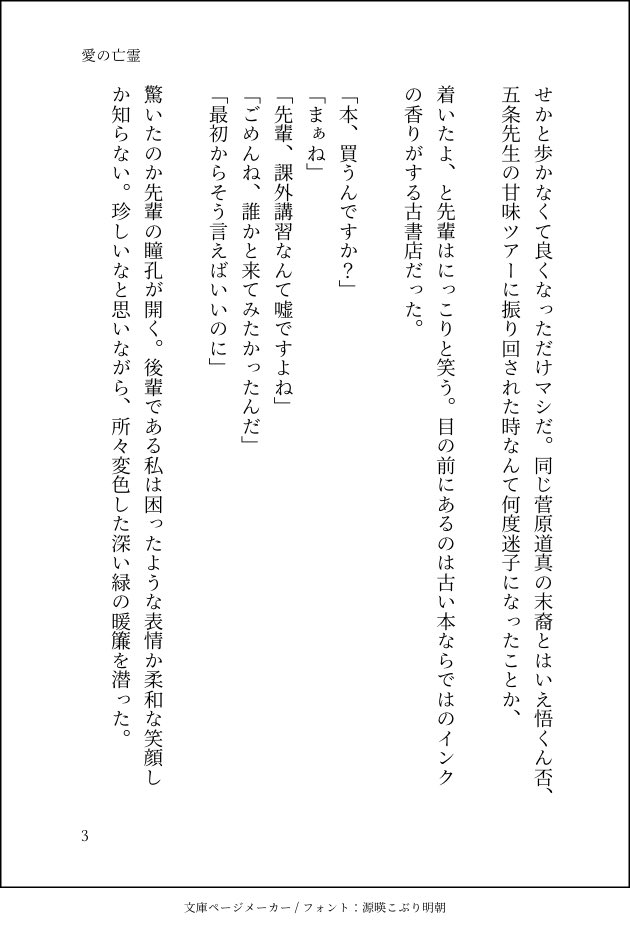 愛の亡霊
せかと歩かなくて良くなっただけマシだ。同じ菅原道真の末裔とはいえ悟くん否、
五条先生の甘味ツアーに振り回された時なんて何度迷子になったことか、
着いたよ、と先輩はにっこりと笑う。目の前にあるのは古い本ならではのインク
の香りがする古書店だった。
「本、買うんですか？」
「まぁね」
「先輩、課外講習なんて嘘ですよね」
「ごめんね、誰かと来てみたかったんだ」
「最初からそう言えばいいのに」
驚いたのか先輩の瞳孔が開く。後輩である私は困ったような表情か柔和な笑顔し
か知らない。珍しいなと思いながら、所々変色した深い緑の暖簾を潜った。
3
文庫ページメーカー / フォント：源暎こぶり明朝